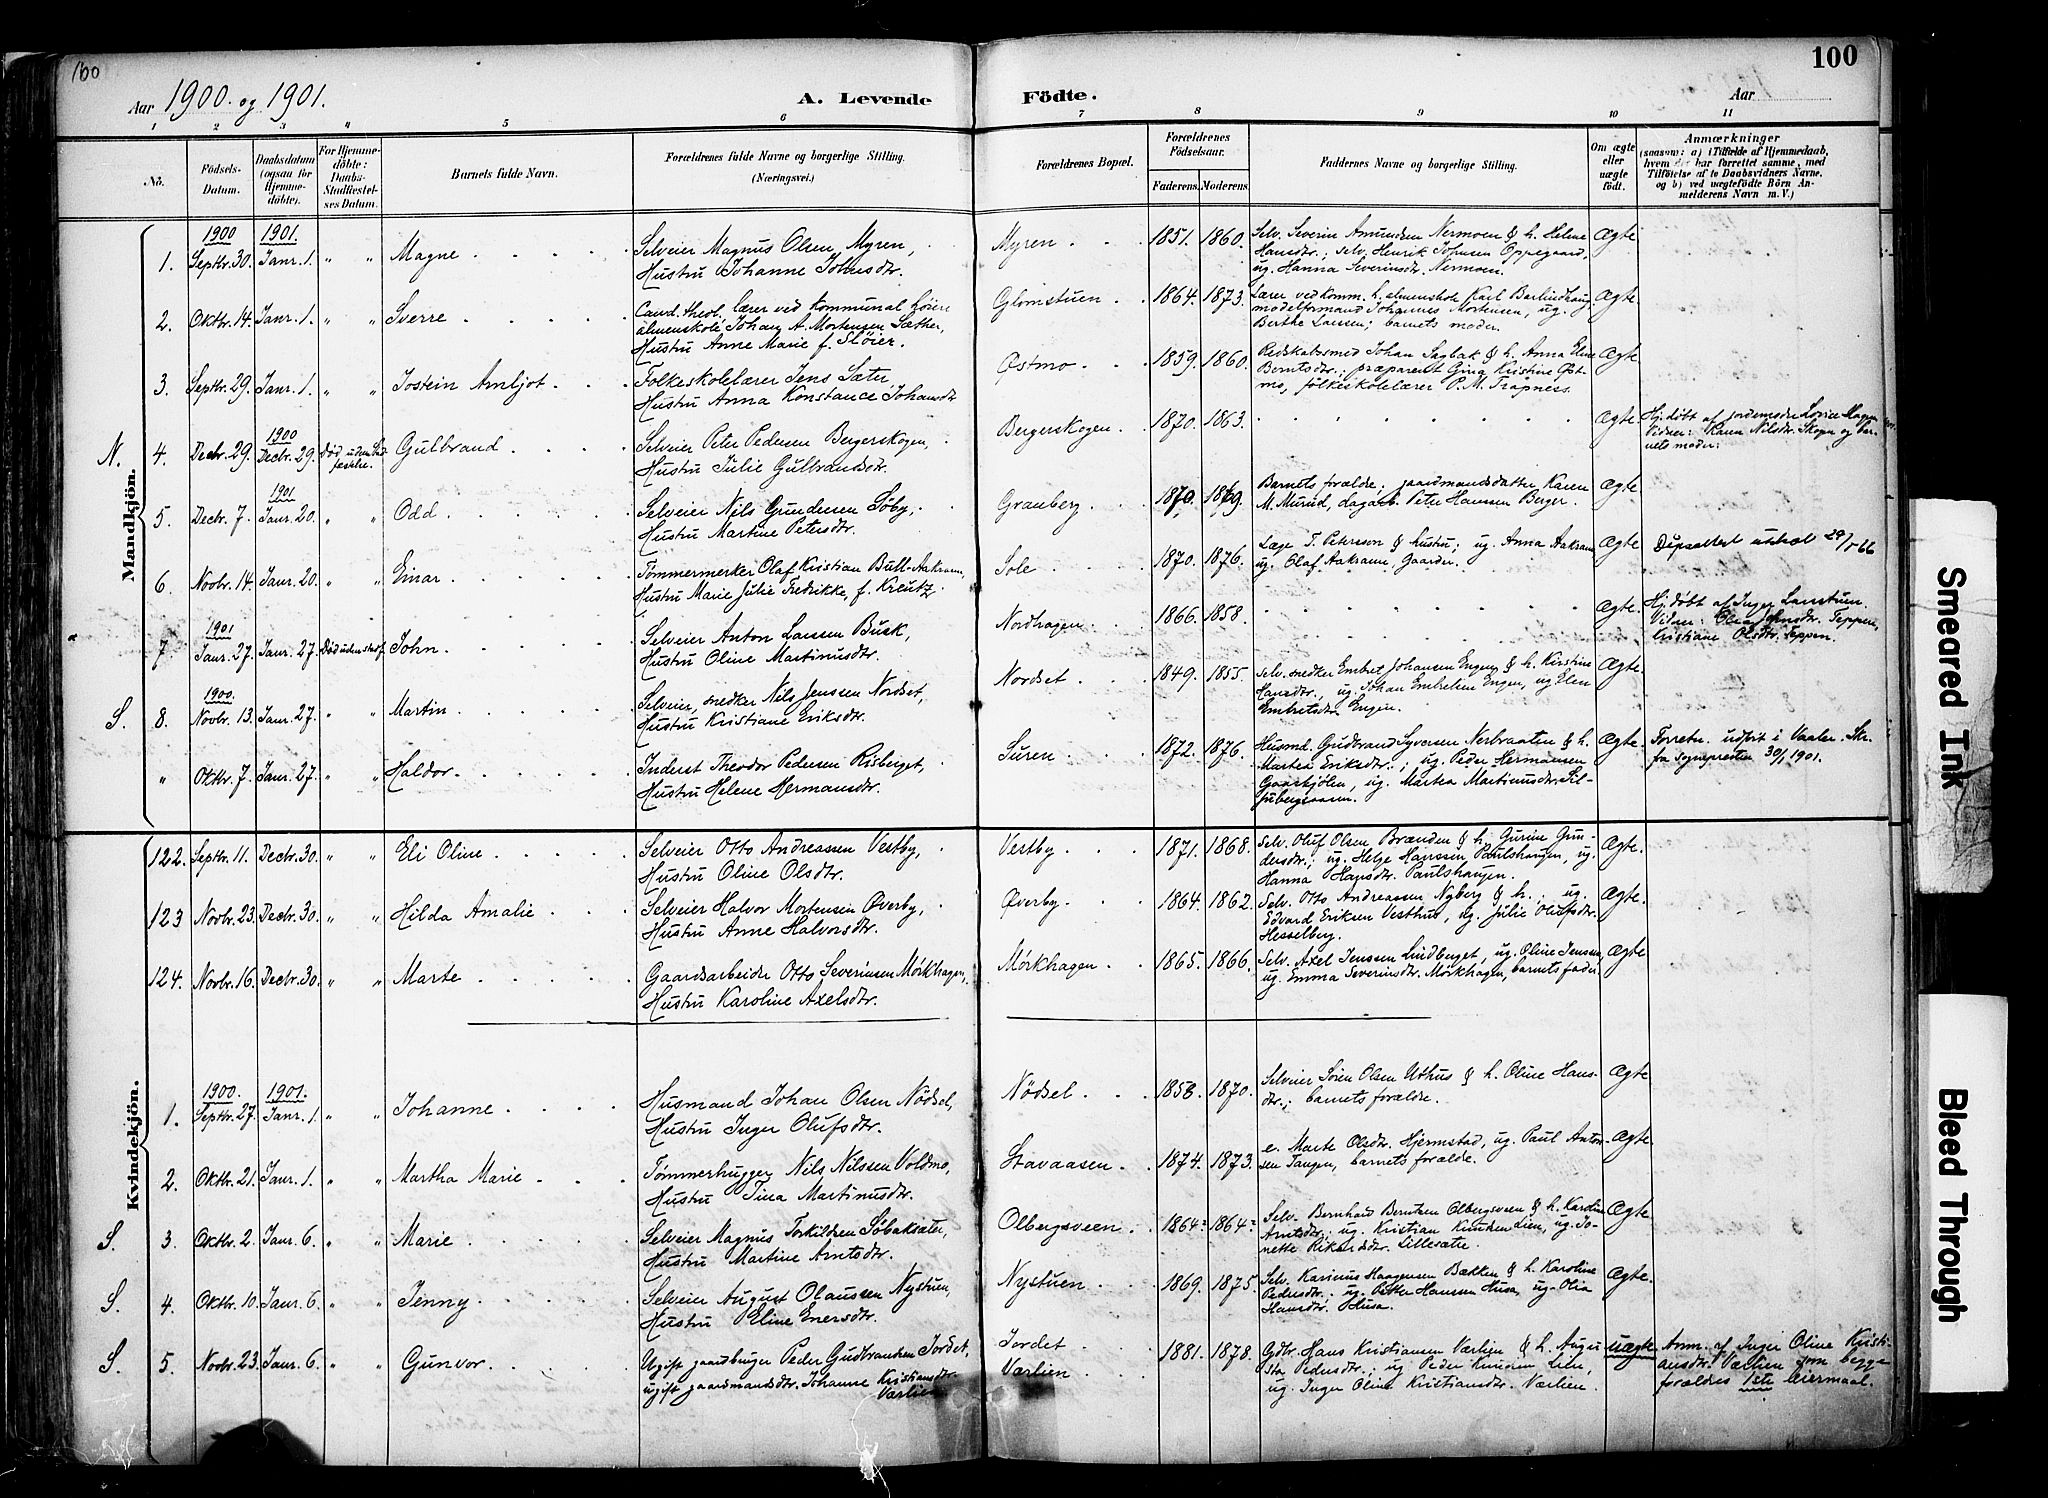 100
100
Aar 1900. og 1901.
A. Levende Födte.
Aar
1 2 3 4 5 6 7 8 9 10 11
No.
Födsels-Datum.
Daabsdatum (ogsaa for Hjemmedöbte).
For Hjemmedöbte: Daabs-Stadfæstelses Datum.
Barnets fulde Navn.
Forældrenes fulde Navne og borgerlige Stilling. (Næringsvei.)
Forældrenes Bopæl.
Forældrenes Födselsaar.
Faderens. Moderens.
Faddernes Navne og borgerlige Stilling.
Om ægte eller uægte födt.
Anmærkninger
(saasom: a) i Tilfælde af Hjemmedaab, hvem der har forrettet samme, med Tilföielse af to Daabsvidners Navne, og b) ved uægtefödte Börn Anmelderens Navn m. V.)
Mandkjön.
1900 1901.
1. Septbr. 30. Janr. 1. " " Magne Selveier Magnus Olsen Myren, Hustru Johanne Johnsdtr. Myren 1851. 1860. Selv. Severin Amundsen Nermoen & h. Helene Hansdtr.; selv. Henrik Johnsen Oppegaard, ug. Hanna Severinsdtr. Nermoen. Ægte
2. Oktbr. 14. Janr. 1. " " Sverre Cand. theol., lærer ved kommunal høiere almenskole Johan A. Mortensen Sæther, Hustru Anne Marie f. Sløier. Glomstuen 1864. 1873. Lærer ved komm. h. almenskole Karl Berlindhaug, modelformand Johannes Mortensen, ug. Berthe Larssen; barnets moder. Ægte
3. Septbr. 29. Janr. 1. " " Jostein Arnljot Folkeskolelærer Jens Sæter, Hustru Anna Konstance Johansdtr Østmo 1859. 1860. Redskabssmed Johan Sagbak & h. Anna Eline Berntsdtr.; præparent Gina Kristine Østmo, folkeskolelærer P. M. Trapness. Ægte
1900
N. 4. Decbr. 29. Decbr. 29. Død uden Stadfæstelse. Gulbrand Selveier Peter Pedersen Bergerskogen, Hustru Julie Gulbrandsdtr. Bergerskogen 1870. 1863. Ægte. Hj. døbt af jordemoder Lovise Vidner: Karen Nilsdtr. Skogen og barnets moder.
1901
5. Decbr. 7. Janr. 20. " " Odd Selveier Nils Gundersen Søby, Hustru Martine Petersdtr. Grauberg 1870. 1869. Barnets forældre; gaardmandsdatter Karen M. Murud, dagarb. Peter Hanssen Berger. Ægte
6. Novbr. 14. Janr. 20. " " Einar Tømmermerker Olaf Kristian Bull-Aakrann, Hustru Marie Julie Fredrikke, f. Kreutz Sole 1870. 1876. Læge T. Petersson & hustru; ug. Anna Aakrann ug. Olaf Aakrann, Gaarder. Ægte Dåpsattest utstedt 29/5-66
1901
7 Janr. 27. Janr. 27. Død uden stadf. John Selveier Anton Larssen Busk, Hustru Oline Martinusdtr. Nordhagen 1866. 1858. Ægte. Hj. døbt af Inger Lønstuen. Vidner: Oline Johnsdtr. Teppen, Kristiane Olsdtr. Teppen.
1900.
S. 8. Novbr. 13. Janr. 27. " " Martin Selveier, snedker Nils Jenssen Nordset, Hustru Kristiane Eriksdtr. Nordset 1849. 1855. Selv. snedker Embret Johansen Engen & h. Kirstine Hansdtr., ug. Johan Embretsen Engen, ug Elen Embretsdtr. Engen. Ægte.
" Oktbr. 7. Janr. 27. " " Haldor Inderst Theodor Pedersen Risberget, Hustru Helene Hermansdtr. Suren 1872. 1876. Husmd. Gudbrand Syversen Nerbraaten & h. Martea Eriksdtr.; ug. Peder Hermansen Gaaskjølen, ug. Martea Martinusdtr. Siljubergsaasen. Ægte. Forretn. udført i Vaaler Skr. fra Sognepresten 30/1 1901.
Kvindekjön.
122. Septbr. 11. Decbr. 30. " " Eli Oline Selveier Otto Andreassen Vestby, Hustru Oline Olsdtr. Vestby 1871. 1868. Selv. Oluf Olsen Brænden & h. Gurine Gundersdtr.; ug. Helge Hanssen Paulshaugen, ug. Hanna Hansdtr. Paulshaugen. Ægte.
123 Novbr. 23. Decbr. 30. " " Hilda Amalie Selveier Halvor Mortensen Øverby, Hustru Anne Halvorsdtr. Øverby 1864. 1862. Selv. Otto Andreassen Nyberg & h.; ug. Edvard Eriksen Vesthus, ug. Julie Olufsdtr. Hesselberg. Ægte.
124. Novbr. 16. Decbr. 30. " " Marte Gaardsarbeider Otto Severinsen Mørkhagen, Hustru Karoline Axelsdtr. Mørkhagen 1865. 1866. Selv. Axel Jenssen Lindberget, ug. Oline Jenssen, ug. Emma Severinsdtr. Mørkhagen, barnets fader. Ægte
1900. 1901.
1. Septbr. 27. Janr. 1. " " Johanne Husmand Johan Olsen Nødsel, Hustru Inger Olufsdtr. Nødsel 1858. 1870. Selveier Søren Olsen Uthus & h. Oline Hansdtr.; barnets forældre. Ægte
2. Oktbr. 21. Janr. 1. " " Martha Marie Tømmerhugger Nils Nilssen Voldmo, Hustru Tina Martinusdtr. Stavaasen 1874. 1873. e. Marte Olsdtr. Hjermstad, ug. Paul Antonsen Tangen, barnets forældre. Ægte.
S. 3. Oktbr. 2. Janr. 6. " " Marie Selveier Magnus Torkildsen Søbaksæter, Hustru Martine Arntsdtr. Olbergsveen 1864 1864 Selv. Bernhard Berntsen Olbergsveen & h. Karoline Arntsdtr.; ug. Kristian Knudsen Lien, ug. Jonette Rikardsdtr. Lillesæter. Ægte
S. 4. Oktbr. 10. Janr. 6. " " Jenny Selveier August Olaussen Nystuen, Hustru Eline Enersdtr. Nystuen 1869. 1875. Selv. Karinus Haagensen Bækken & h. Karoline Pedersdtr.; ug. Petter Hanssen Husa, ug. Olia Hansdtr. Husa. Ægte.
S. 5. Novbr. 23. Janr. 6. " " Gunvor Ugift gaardbruger Peder Gudbrandsen Jordet, ugift gaardmandsdtr. Johanne Kristiansdtr. Værlien Jordet Værlien 1881. 1878. Gdbr. Hans Kristiansen Værlien & h. Augusta Pedersdtr.; ug Peder Knudsen Lien, ug. Inger Oline Kristiansdtr. Værlien. uægte Anm. af Inger Oline Kristiansdtr. Værlien som begge forældres 1ste leiermaal.
Smeared Ink
Bleed Through